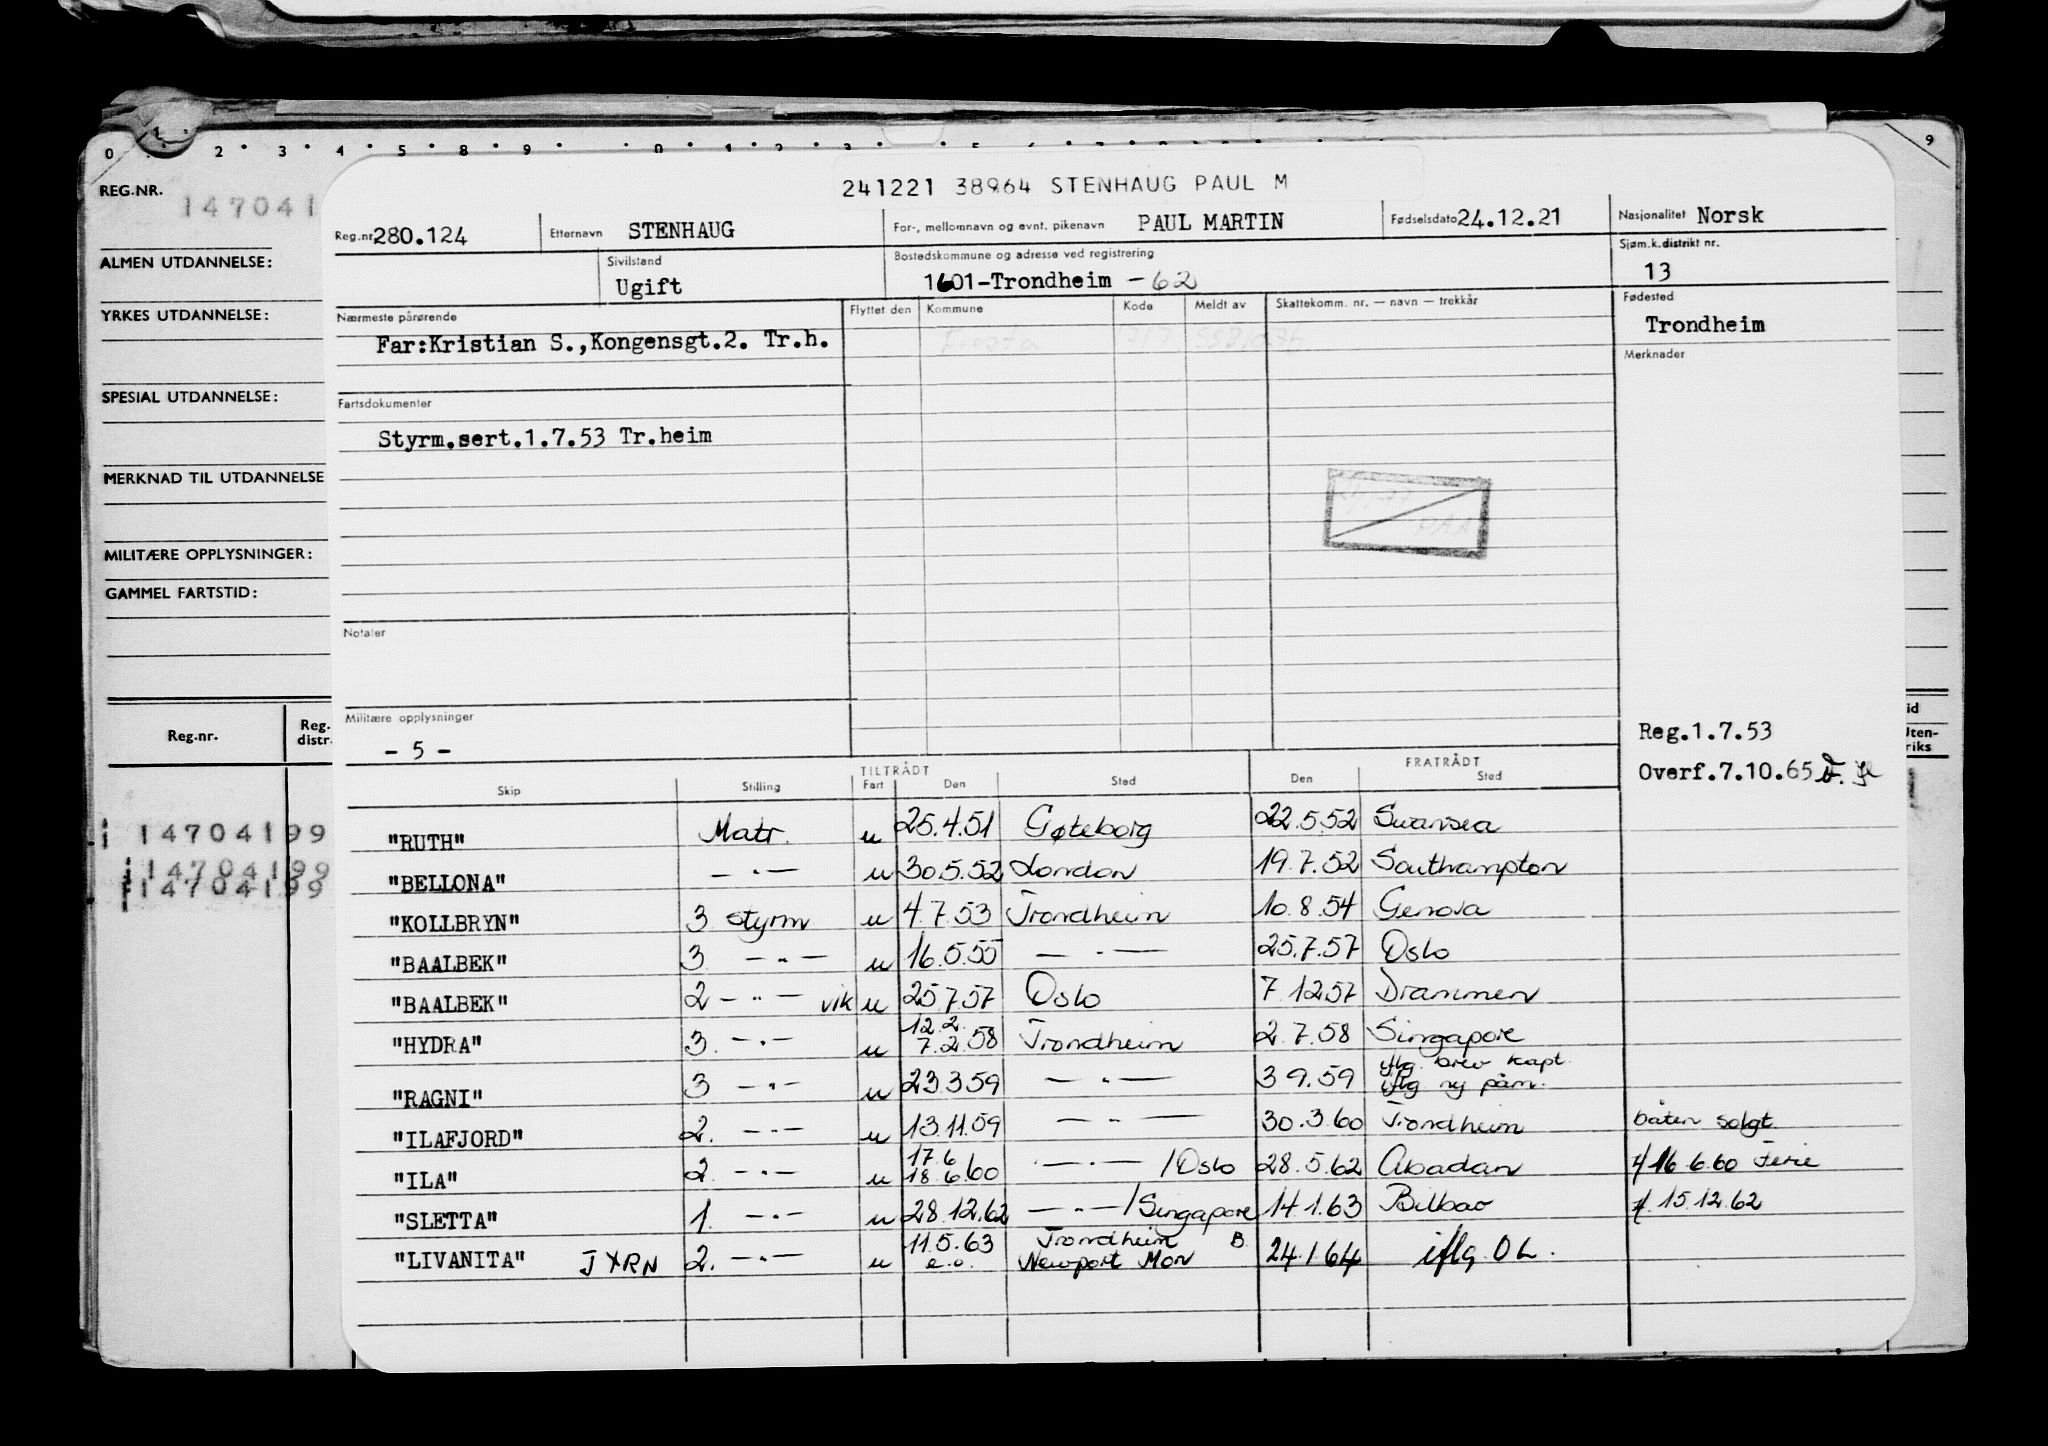 0 2 3 4 5 8 9 0 1 2 3 5 9
REG.NR.
147041
ALMEN UTDANNELSE:
YRKES UTDANNELSE:
SPESIAL UTDANNELSE:
MERKNAD TIL UTDANNELSE
MILITÆRE OPPLYSNINGER:
GAMMEL FARTSTID:
Reg.nr. Reg. distr.
14704199
14704199
14704199
241221 38964 STENHAUG PAUL M
Reg.nr 280.124 Etternavn STENHAUG For-, mellomnavn og evnt. pikenavn PAUL MARTIN Fødselsdato 24.12.21 Nasjonalitet Norsk
Sivilstand Ugift Bostedskommune og adresse ved registrering 1601-Trondheim - 62 Sjøm.k.distrikt nr. 13
Nærmeste pårørende Flyttet den Kommune Kode Meldt av Skattekomm. nr. — navn — trekkår Fødested
Far:Kristian S.,Kongensgt.2. Tr.h. Frosta 717 Trondheim
Merknader
Fartsdokumenter
Styrm.sert.1.7.53 Tr.heim
Notater
Militære opplysninger
- 5 -
Reg.1.7.53
Overf.7.10.65
TILTRÅDT FRATRÅDT
Skip Stilling Fart Den Sted Den Sted
"RUTH" Matr. u 25.4.51 Gøteborg 22.5.52 Swansea
"BELLONA" — " — u 30.5.52 London 19.7.52 Southampton
"KOLLBRYN" 3 styrm u 4.7.53 Trondheim 10.8.54 Genova
"BAALBEK" 3 — " — u 16.5.55 — " — 25.7.57 Oslo
"BAALBEK" 2 — " — vik u 25.7.57 Oslo 7.12.57 Drammen
"HYDRA" 3. — " — u 12.2. 7.2.58 Trondheim 2.7.58 Singapore
"RAGNI" 3 — " — u 23.3.59 — " — 3.9.59 iflg. brev kapt. iflg ny påm.
"ILAFJORD" 2. — " — u 13.11.59 — " — 30.3.60 Trondheim båten solgt.
"ILA" 2. — " — u 17.6 18.6.60 — " — /Oslo 28.5.62 Abadan f/16.6.60 Ferie
"SLETTA" 1. — " — u 28.12.62 — " — /Singapore 14.1.63 Bilbao f. 15.12.62
"LIVANITA" JXRN 2. — " — u 11.5.63 e.o. Trondheim B. Newport Mon 24.1.64 iflg. OL.